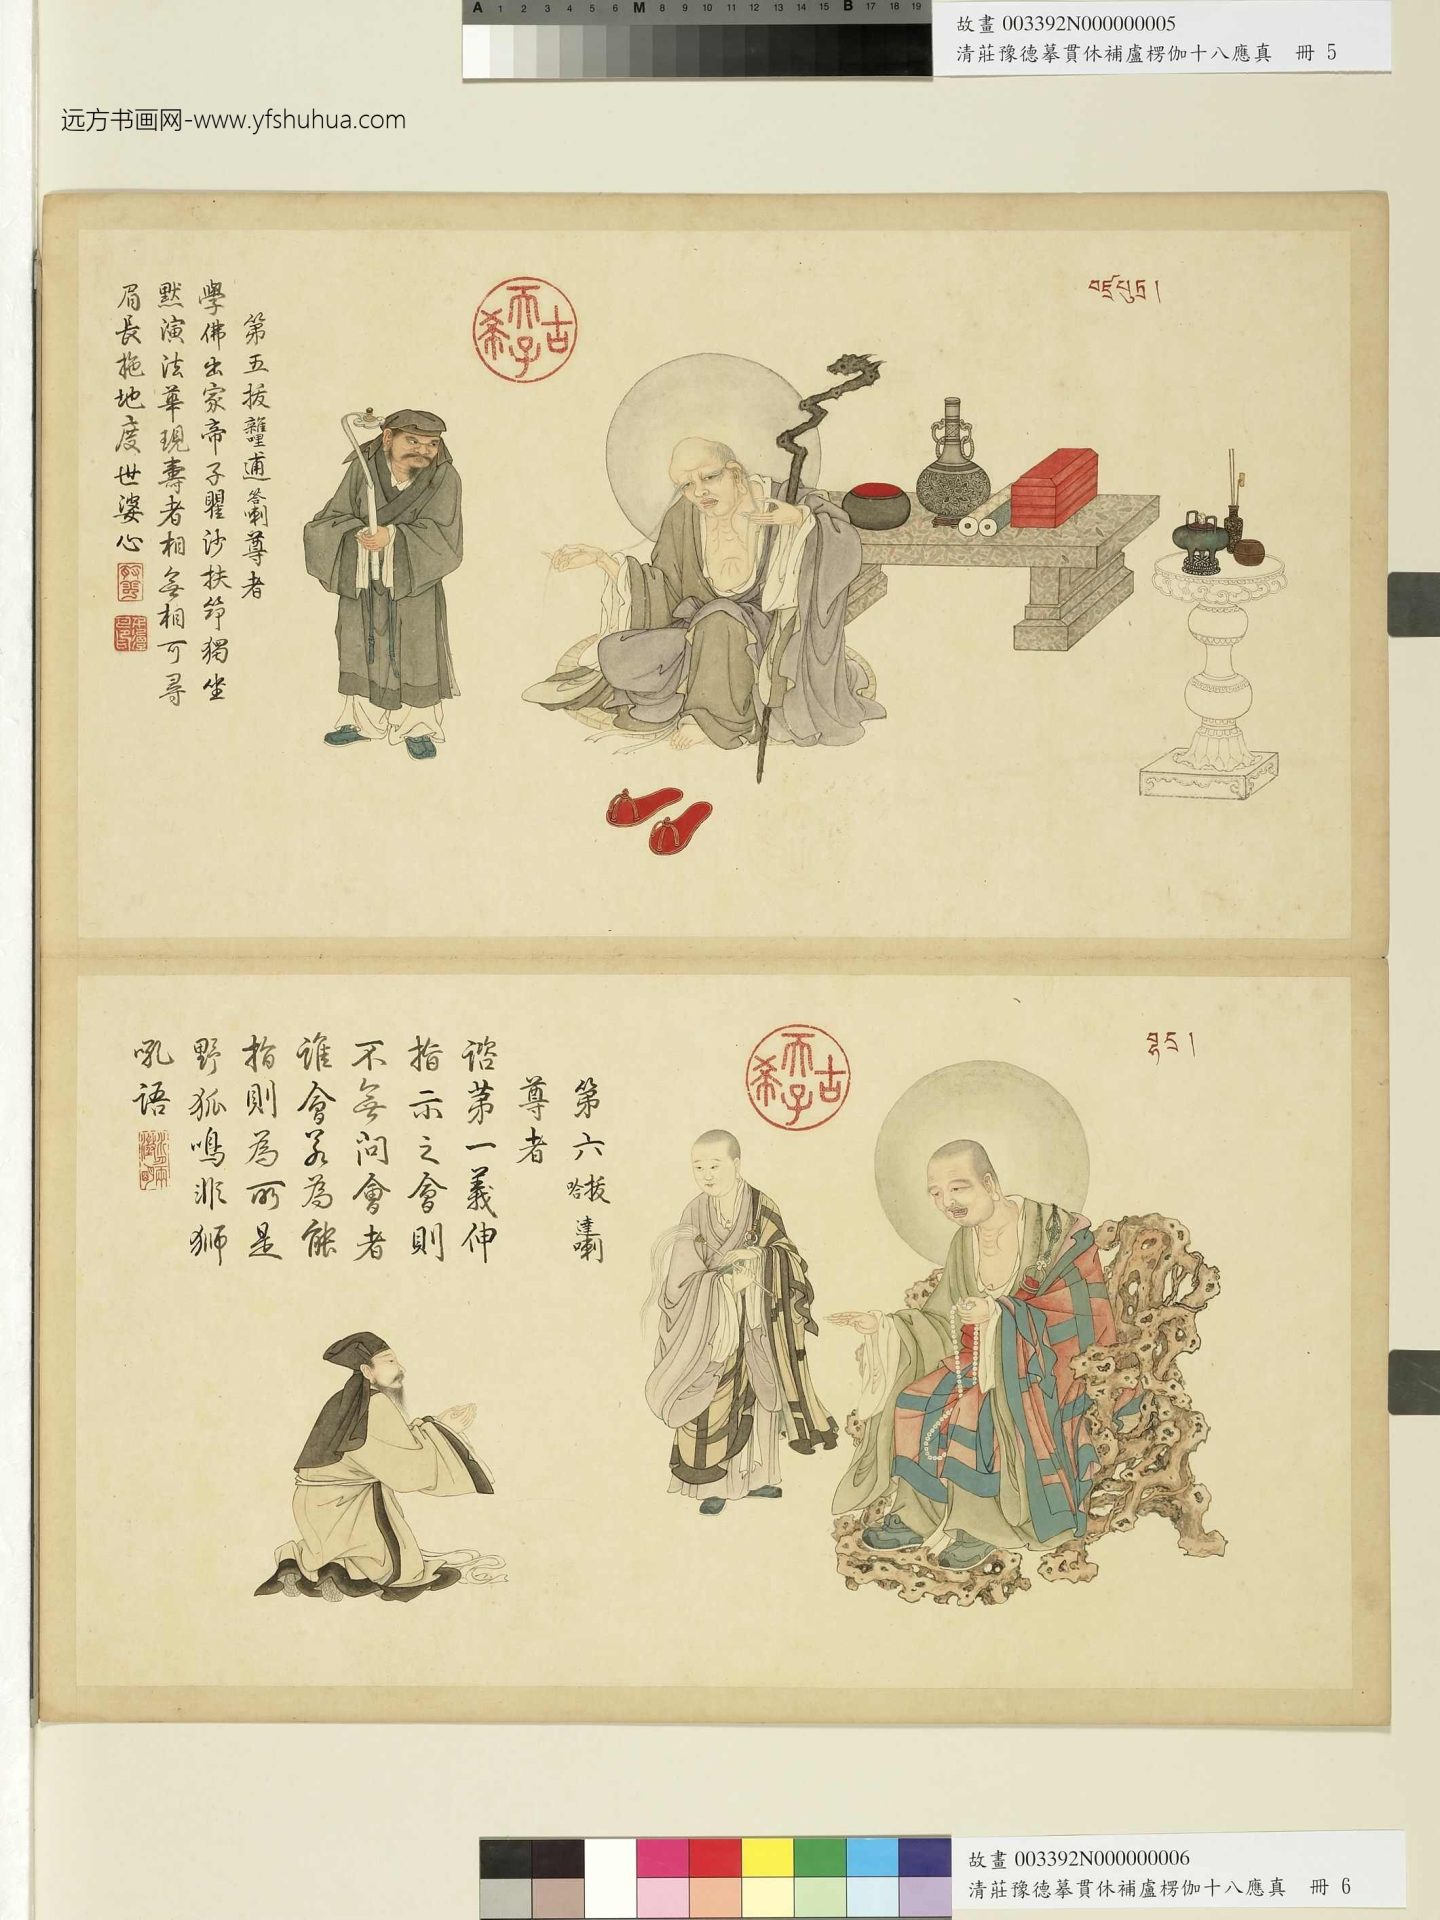 A 1 2 3 4 5 6 M 8 9 10 11 12 13 14 15 B 17 18 19
故畫 003392N000000005
清莊豫德摹貫休補盧楞伽十八應真 冊 5
远方书画网-www.yfshuhua.com
古
希
天
子
第五拔雜哩逋答喇尊者
學佛出家帝子瞿沙扶笻獨坐
默演法華現壽者相無相可尋
眉長拖地度世婆心
古
希
天
子
第六拔哈達喇
尊者
諮第一義伸
指示之會則
不無問會者
誰會若為能
指則為所是
野狐鳴非獅
吼語
故畫 003392N000000006
清莊豫德摹貫休補盧楞伽十八應真 冊 6